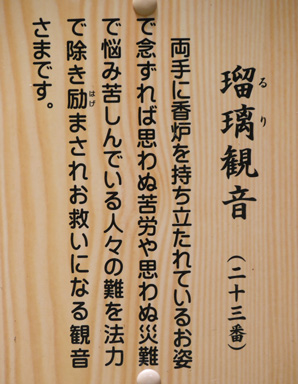 瑠璃観音
るり
（二十三番）
両手に香炉を持ち立たれているお姿
で念ずれば思わぬ苦労や思わぬ災難
で悩み苦しんでいる人々の難を法力
で除き励まされお救いになる観音
はげ
さまです。